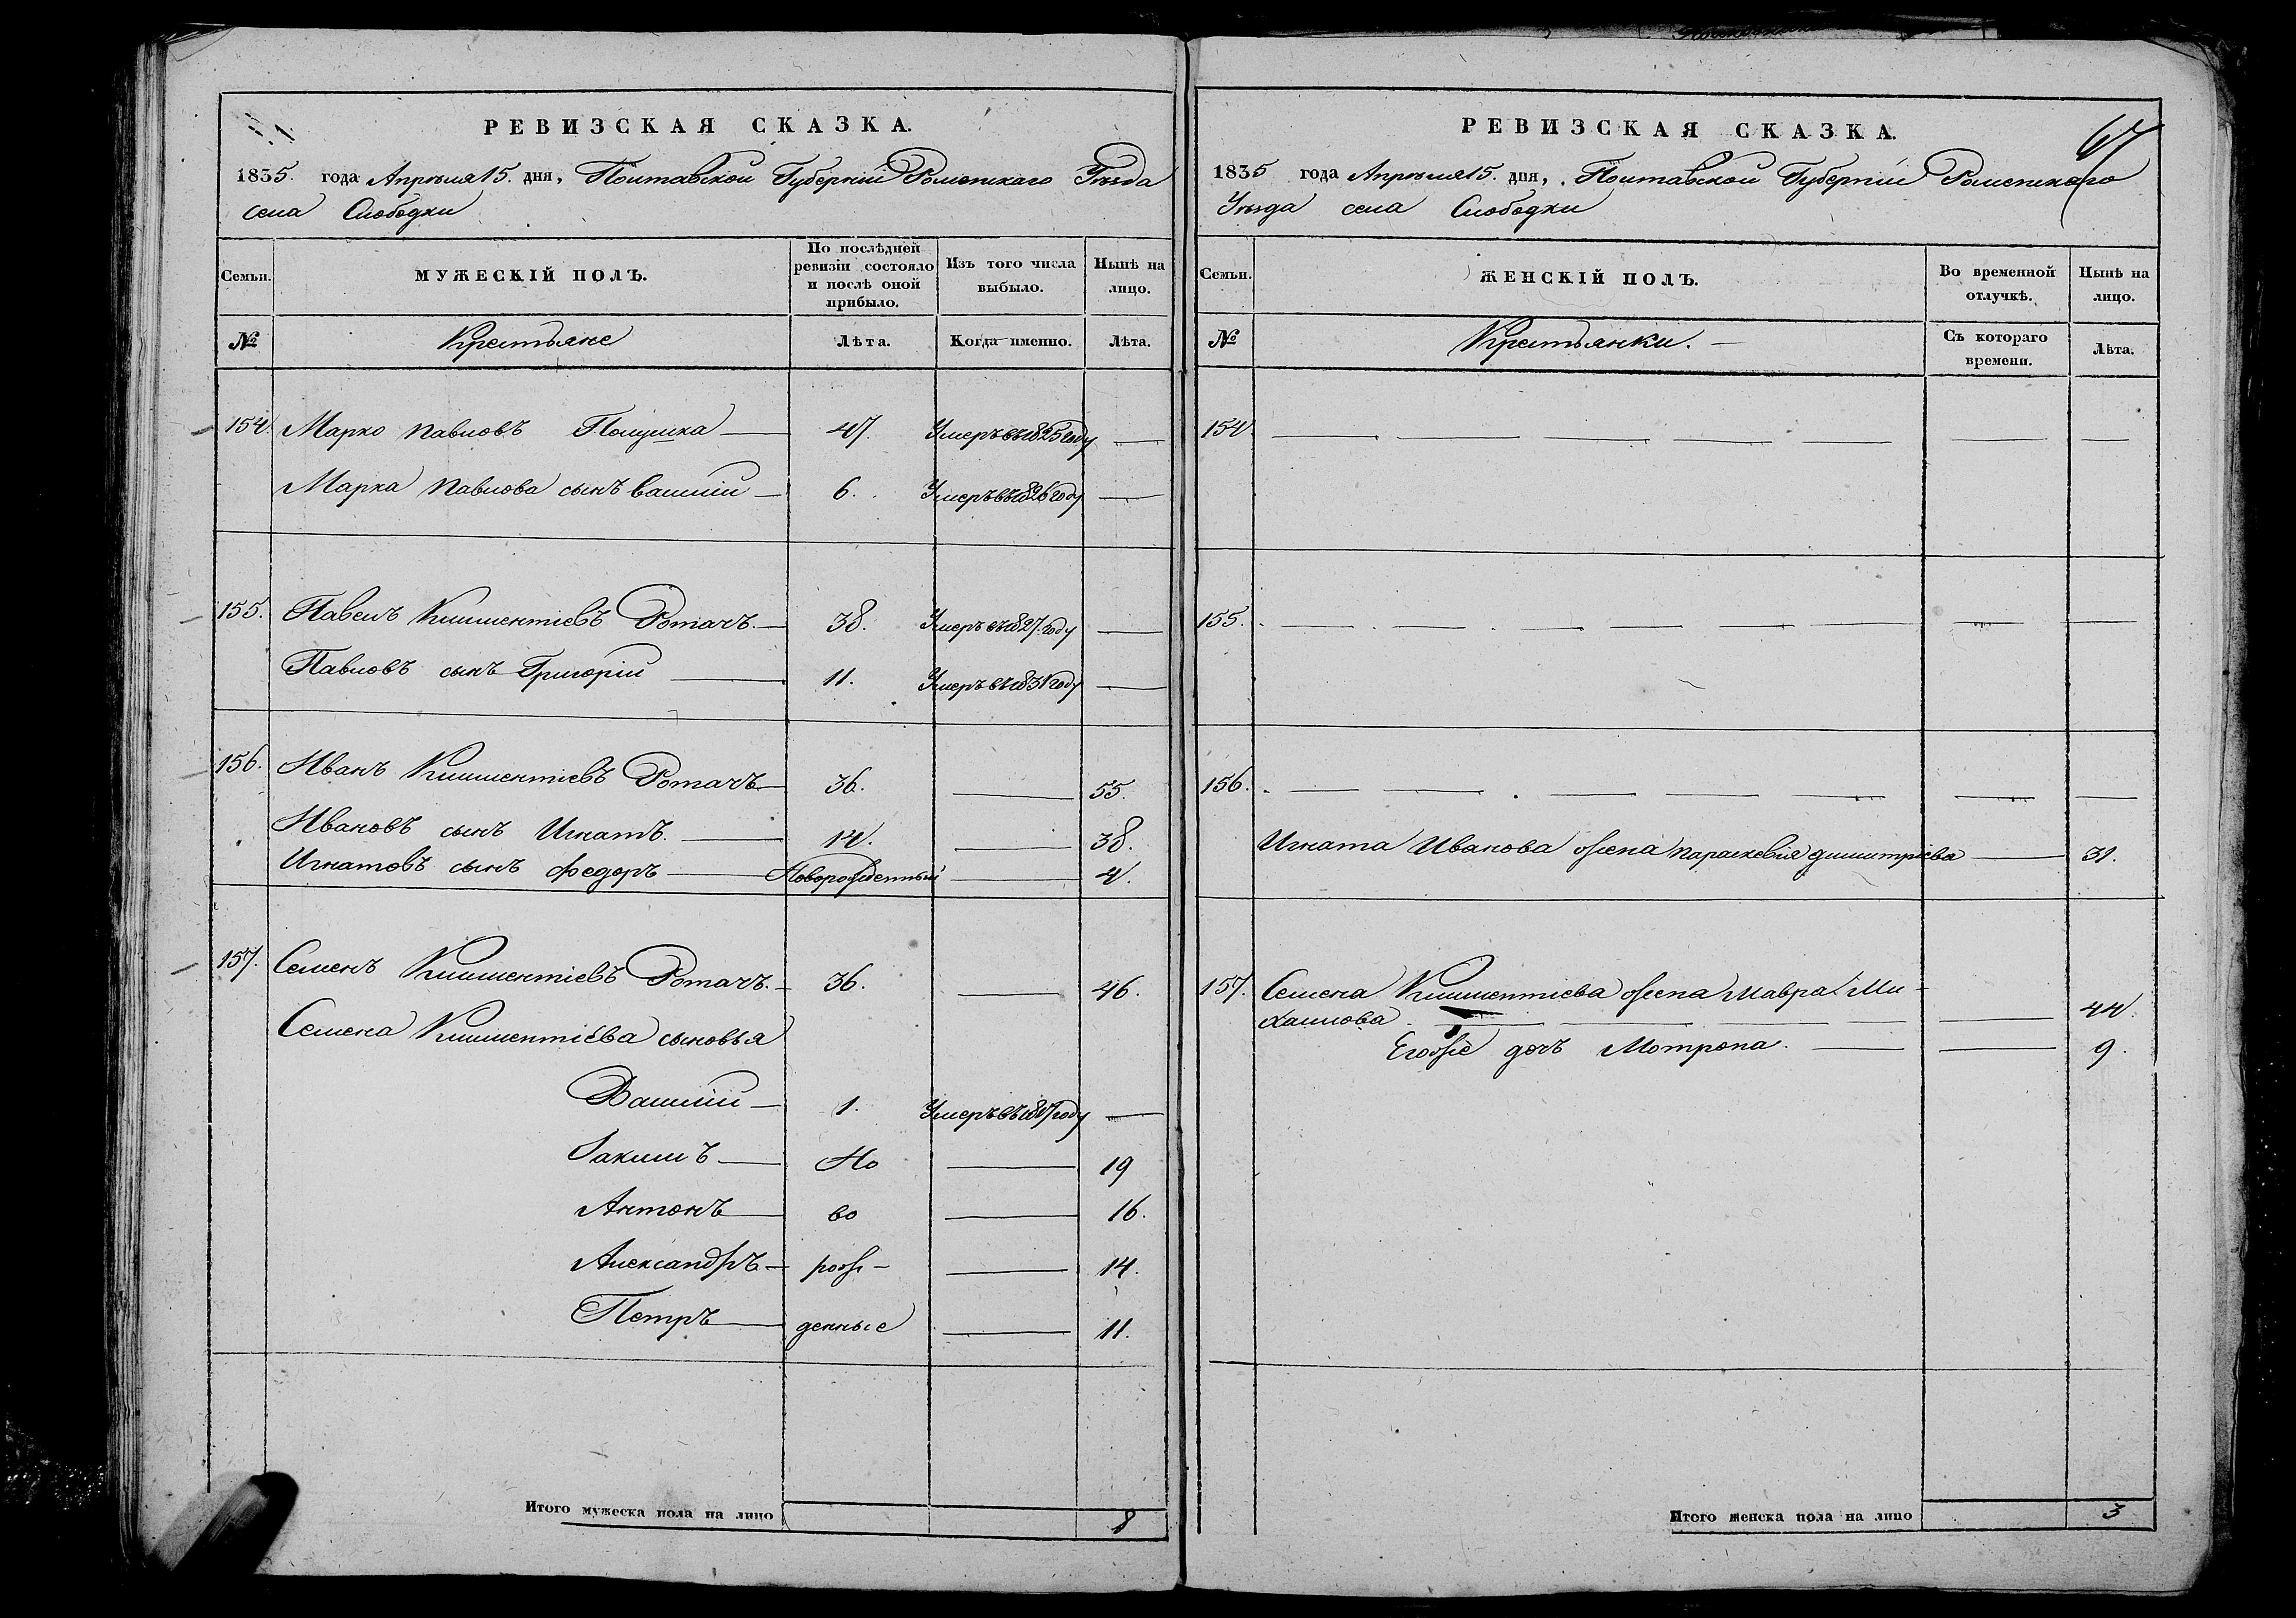 РЕВИЗСКАЯ СКАЗКА.
1835. года Апрѣля 15. дня, Полтавской Губерніи Роменскаго Уѣзда
села Слободки
Семьи. МУЖЕСКІЙ ПОЛЪ. По послѣдней ревизіи состояло и послѣ оной прибыло. Изъ того числа выбыло. Нынѣ на лицо.
№ Крестьяне Лѣта. Когда именно. Лѣта.
154. Марко Павловъ 47. Умеръ въ 1825 году —
Марка Павлова сынъ Василій — 6. Умеръ въ 1826 году —
155. Павелъ Климентіевъ Ротачъ. — 38. Умеръ въ 1827. году —
Павловъ сынъ Григорій — 11. Умеръ въ 1831 году —
156. Иванъ Климентіевъ Ротачъ — 36. — 55.
Ивановъ сынъ Игнатъ. — 14. — 38.
Игнатовъ сынъ Федоръ — Новорожденный — 4.
157. Семенъ Климентіевъ Ротачъ. — 36. — 46.
Семена Климентіева сыновья
Василій — 1. Умеръ въ 1817 году —
Іакимъ — Но — 19
Антонъ — во — 16.
Александръ — рож- — 14.
Петръ — денные — 11.
Итого мужеска пола на лицо 8
67
РЕВИЗСКАЯ СКАЗКА.
1835 года Апрѣля 15. дня, Полтавской Губерніи Роменскаго
Уѣзда села Слободки
Семьи. ЖЕНСКІЙ ПОЛЪ. Во временной отлучкѣ. Нынѣ на лицо.
№ Крестьянки. — Съ котораго времени. Лѣта.
154. — — — — — — —
155. — — — — — — —
156. — — — — — — —
Игната Иванова жена Параскевія Димитріева — 31.
157. Семена Климентіева жена Мавра Ми-
хаилова — — — — — 44.
Егоже дочь Мотрона. — — 9.
Итого женска пола на лицо 3